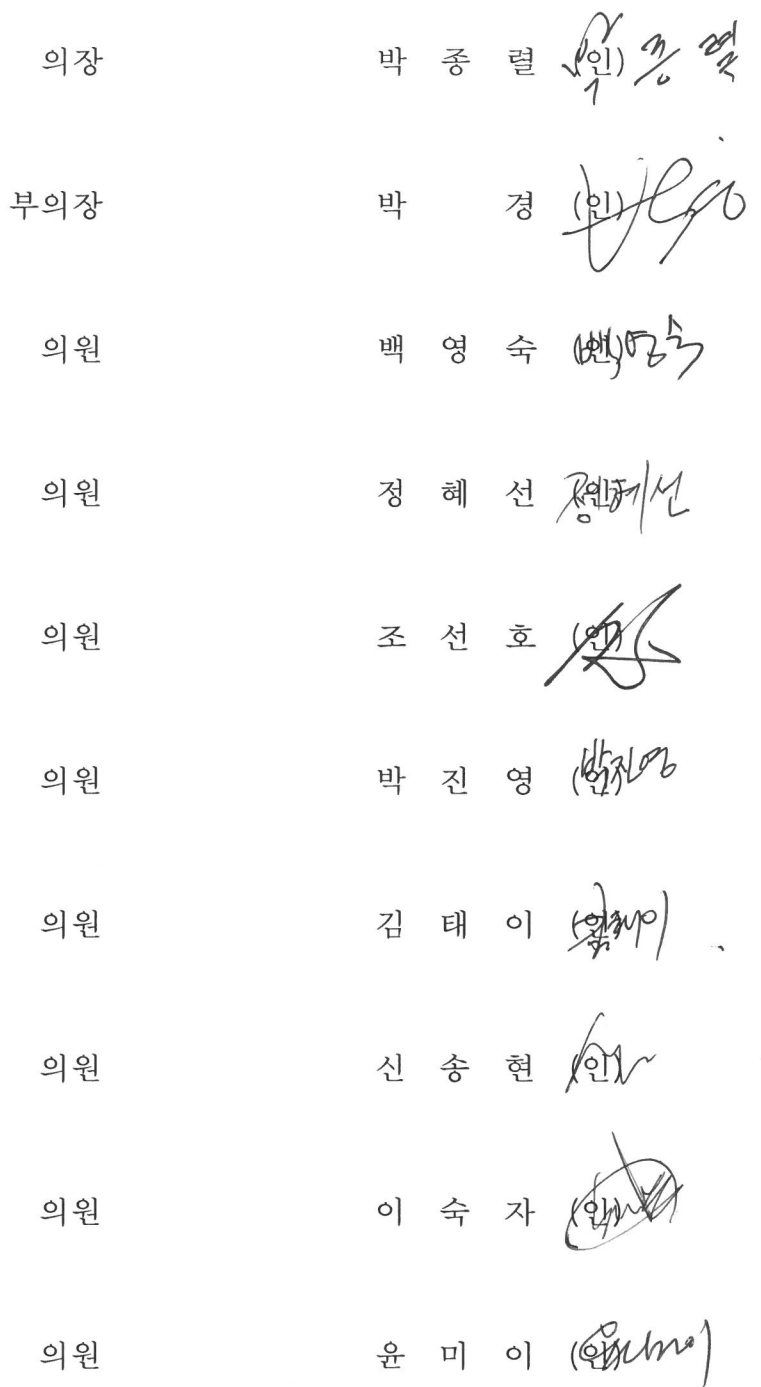 의장 박 종 렬 (인) 박 종 렬
부의장 박 경 (인)
의원 백 영 숙 (인) 백영숙
의원 정 혜 선 (인) 정혜선
의원 조 선 호 (인)
의원 박 진 영 (인) 박진영
의원 김 태 이 (인) 김태이
의원 신 송 현 (인)
의원 이 숙 자 (인)
의원 윤 미 이 (인)